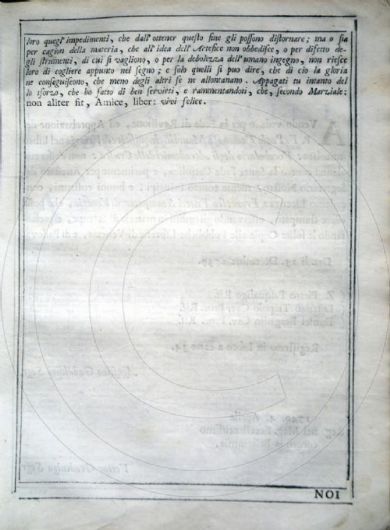 loro quegl' impedimenti, che dall' ottener questo fine gli possono distornare; ma o sia
per cagion della materia, che all' idea dell' Artefice non obbedisce, o per difetto de-
gli strumenti, di cui si vagliono, o per la debolezza dell' umano ingegno, non riesce
loro di cogliere appunto nel segno; e solo quelli si può dire, che di ciò la gloria
ne conseguiscono, che meno degli altri se ne allontanano. Appagati tu intanto del
lo sforzo, che ho fatto di ben servirti, e rammentandoti, che, secondo Marziale:
non aliter fit, Amice, liber: vivi felice.
NOI